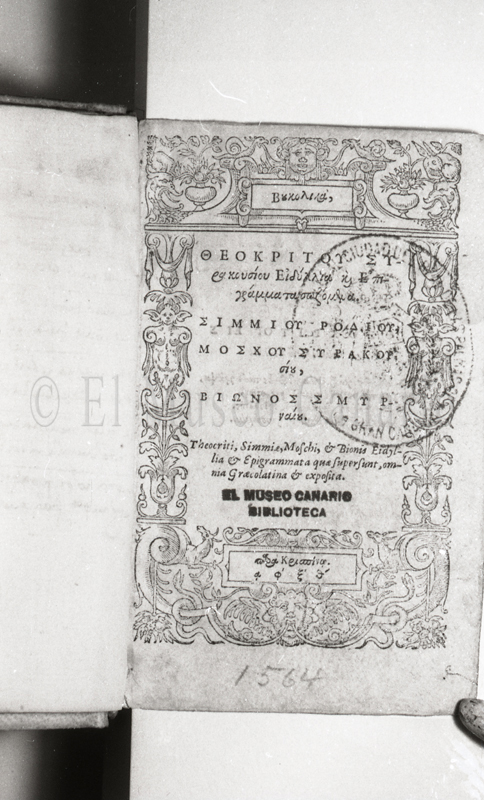 Βυκολικά,
ΘΕΟΚΡΙΤΟΥ ΣΥ
ρακουσίου Εἰδύλλια κ̀ Ἐπι
γράμματα σωζόμενα.
ΣΙΜΜΙΟΥ ΡΟΔΙΟΥ,
ΜΟΣΧΟΥ ΣΥΡΑΚΟΥ
σίου,
ΒΙΩΝΟΣ ΣΜΥΡ-
ναίου.
Theocriti, Simmiæ, Moschi, & Bionis Eidyl-
lia & Epigrammata quæ supersunt, om-
nia Græcolatina & exposita.
EL MUSEO CANARIO
BIBLIOTECA
Κρισπίνῳ.
α φ ξ θ
1564
© El Museo Canario